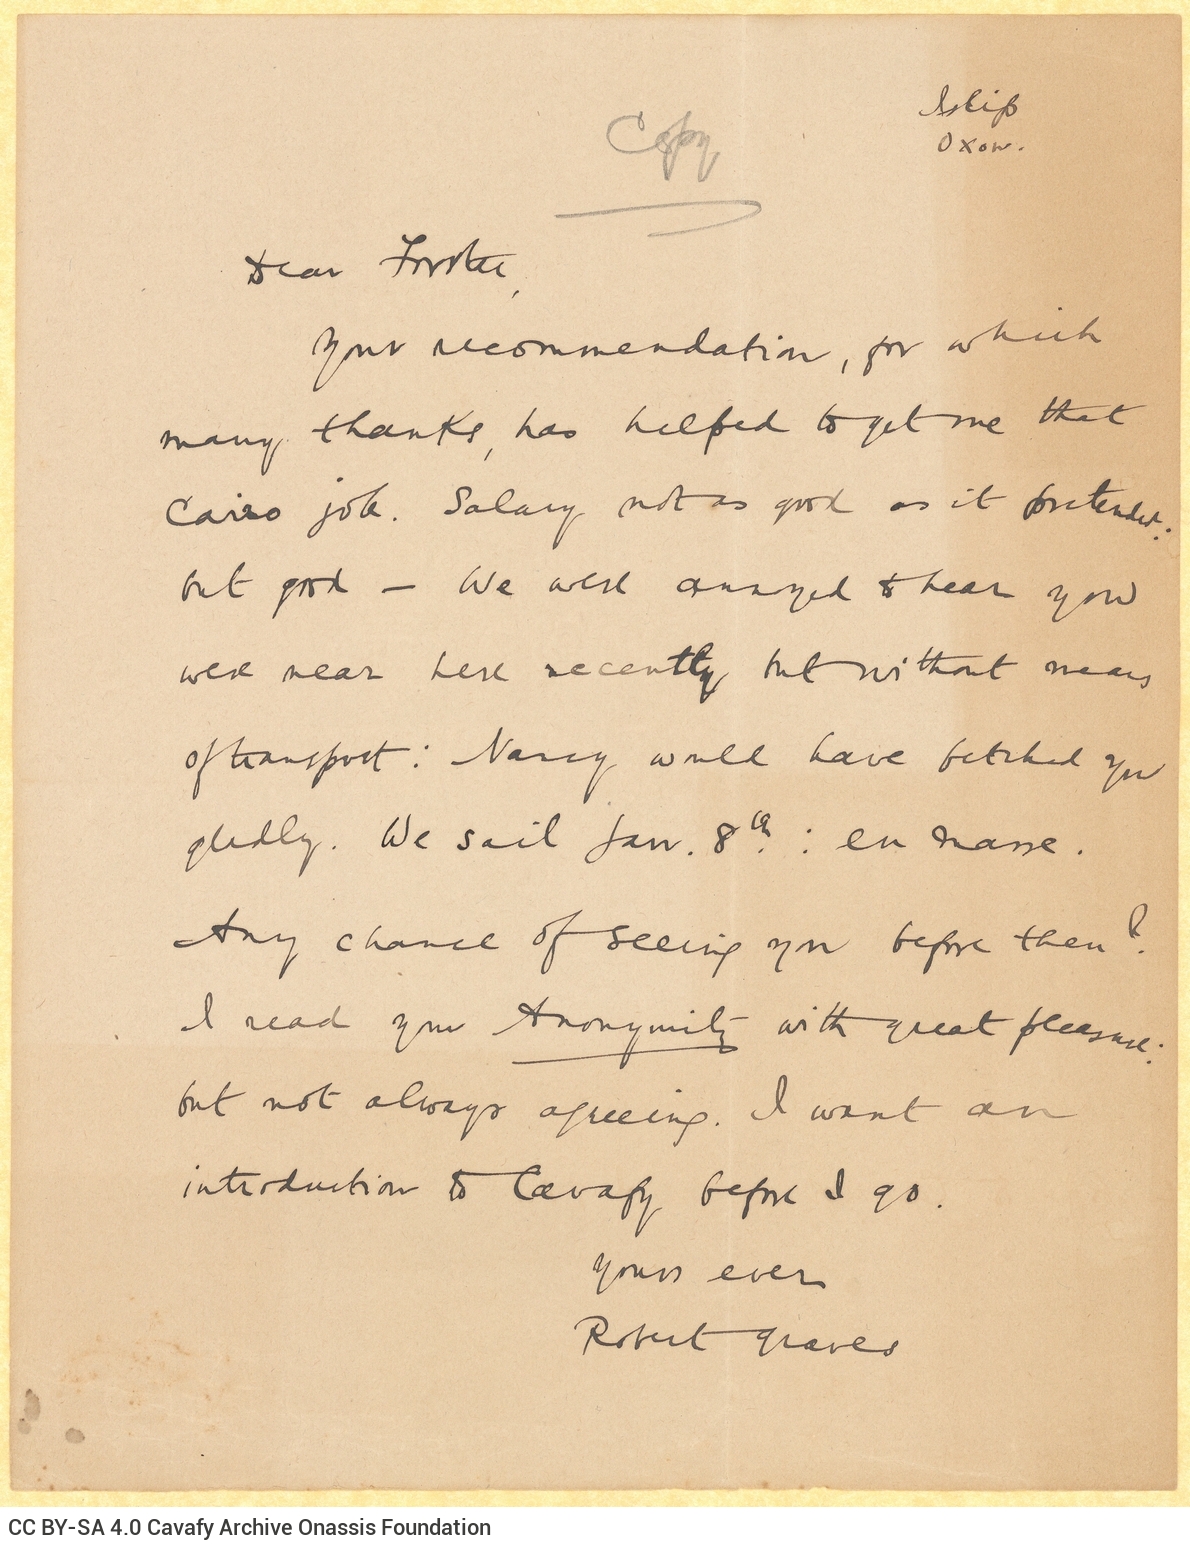 Islip
Oxon.
Copy
Dear Forster,
Your recommendation, for which
many thanks, has helped to get me that
Cairo job. Salary not as good as it pretended:
but good — We were annoyed to hear you
were near here recently but without means
of transport: Nancy would have fetched you
gladly. We sail Jan. 8th. : en masse.
Any chance of seeing you before then?
I read your Anonymity with great pleasure:
but not always agreeing. I want an
introduction to Cavafy before I go.
Yours ever
Robert Graves
CC BY-SA 4.0 Cavafy Archive Onassis Foundation